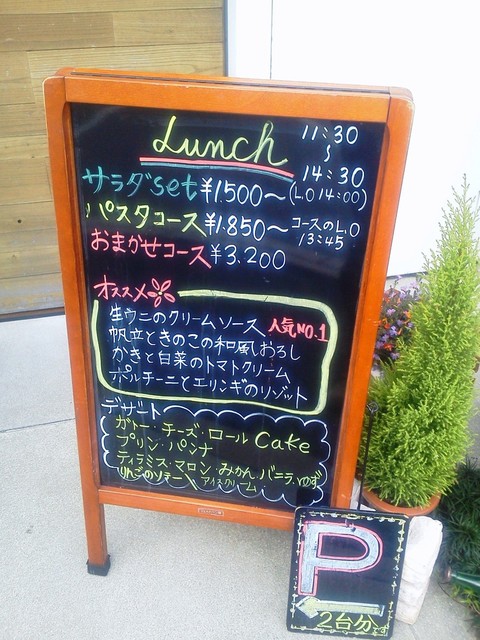 Lunch
11:30
～
14:30
サラダset ¥1.500～ (L.O 14:00)
パスタコース ¥1.850～ コースのL.O
13:45
おまかせコース ¥3.200
オススメ
生ウニのクリームソース 人気NO.1
帆立ときのこの和風おろし
かきと白菜のトマトクリーム
ポルチーニとエリンギのリゾット
デザート
ガトー・チーズ・ロール Cake
プリン・パンナ
ティラミス・マロン・みかん・バニラ・ゆず
りんごのソテー アイスクリーム
P
2台分です